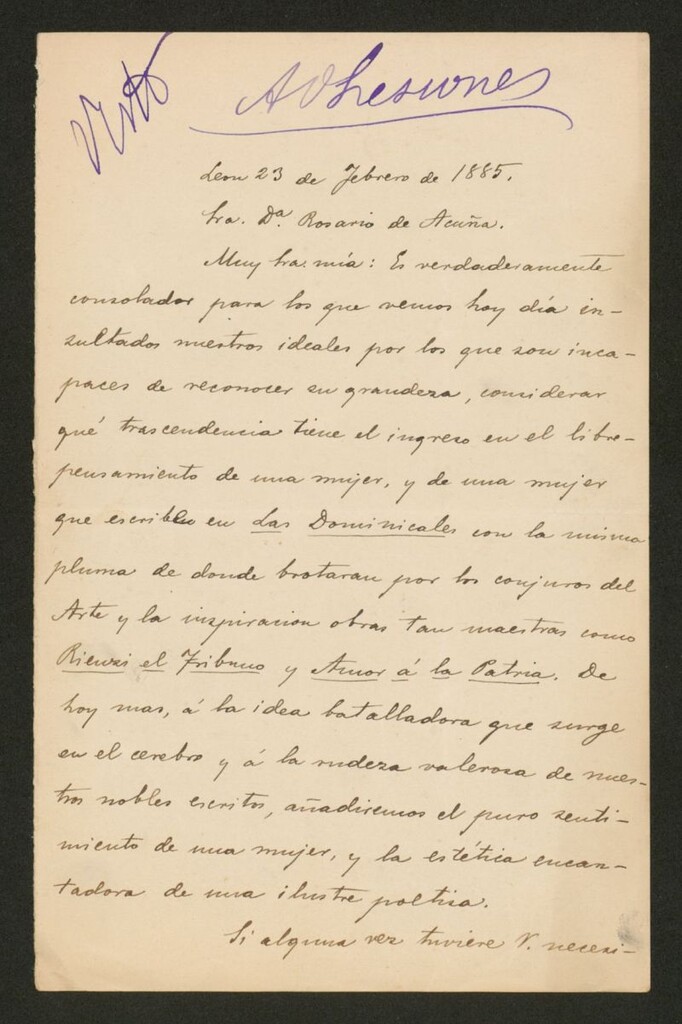 Visto
Adhesiones
Leon 23 de Febrero de 1885.
Sra. Dª Rosario de Acuña.
Muy Sra. mía: Es verdaderamente
consolador para los que vemos hoy día in-
sultados nuestros ideales por los que son inca-
paces de reconocer su grandeza, considerar
qué trascendencia tiene el ingreso en el libre-
pensamiento de una mujer, y de una mujer
que escribe en Las Dominicales con la misma
pluma de donde brotaran por los conjuros del
Arte y la inspiracion obras tan maestras como
Rienzi el Tribuno y Amor á la Patria. De
hoy mas, á la idea batalladora que surge
en el cerebro y á la rudeza valerosa de nues-
tros nobles escritos, añadiremos el puro senti-
miento de una mujer, y la estética encan-
tadora de una ilustre poetisa.
Si alguna vez tuviere V. necesi-